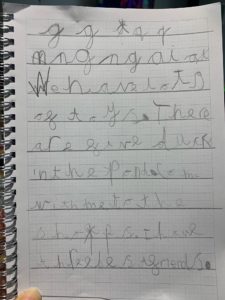 g g *q q
mngngaiak
We have lots
of toys. There
are five duck
in the pond. Come
with me to the
shops. I have
three best friends.